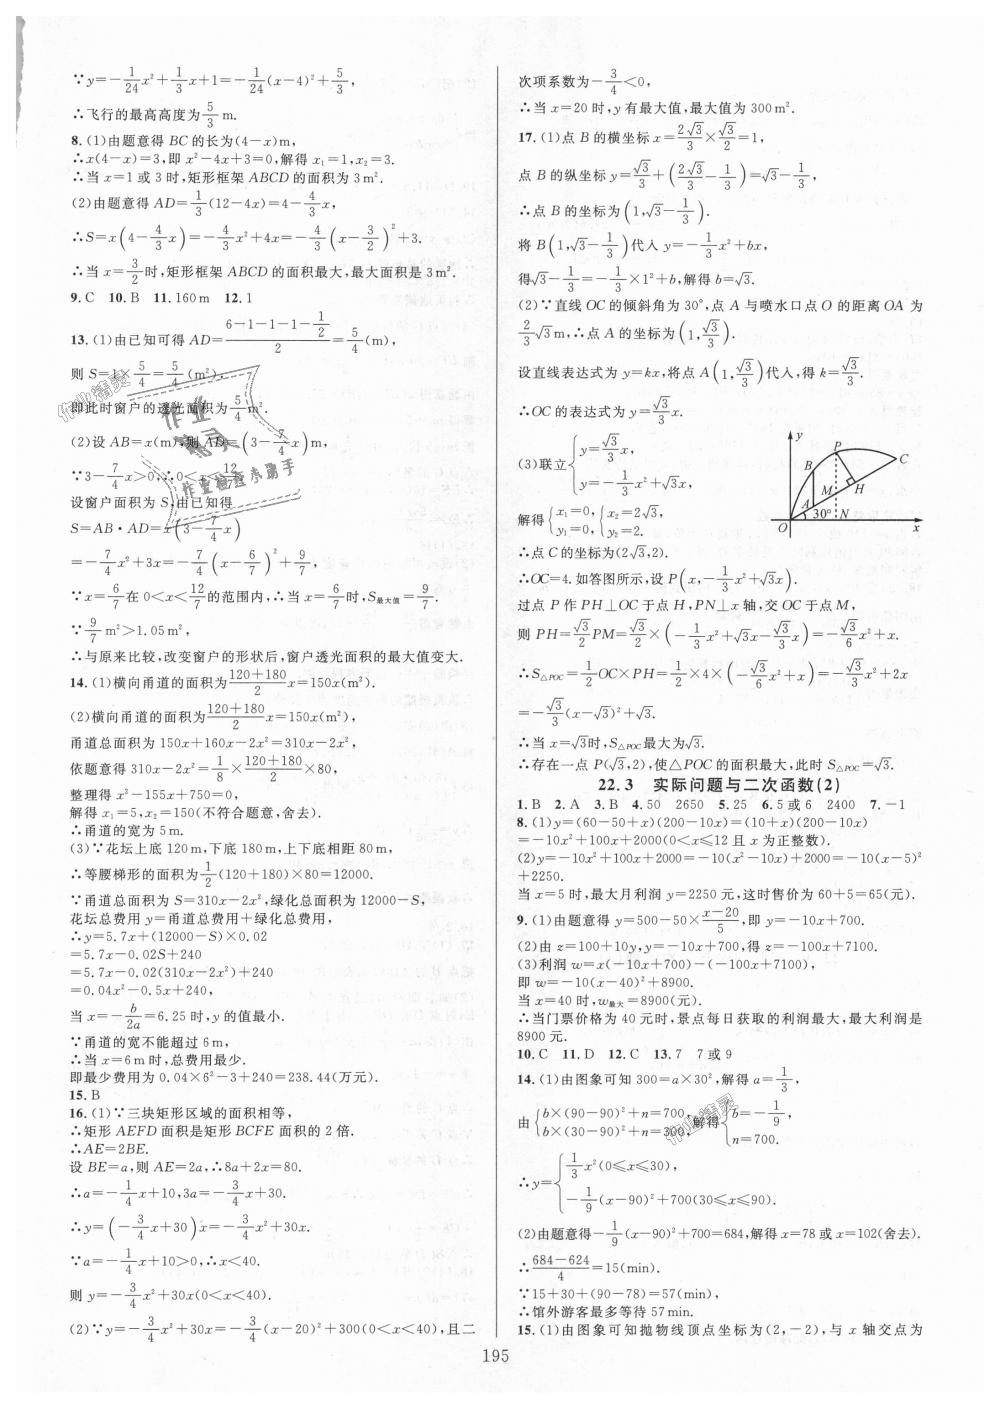 ∵y=－1/24x²＋1/3x＋1=－1/24(x－4)²＋5/3,
∴飞行的最高高度为5/3 m.
8.(1)由题意得 BC 的长为(4－x)m,
∴x(4－x)=3,即 x²－4x＋3=0,解得 x₁=1,x₂=3.
∴当 x=1 或 3 时,矩形框架 ABCD 的面积为 3 m².
(2)由题意得 AD=1/3(12－4x)=4－4/3x,
∴S=x(4－4/3x)=－4/3x²＋4x=－4/3(x－3/2)²＋3.
∴当 x=3/2时,矩形框架 ABCD 的面积最大,最大面积是 3 m².
9.C 10.B 11.160 m 12.1
13.(1)由已知可得 AD=(6－1－1－1－1/2)/2=5/4(m),
则 S=1×5/4=5/4(m²),
即此时窗户的透光面积为5/4 m².
(2)设 AB=x(m),则 AD=(3－7/4x)m,
∵3－7/4x>0,∴0<x<12/7.
设窗户面积为 S,由已知得
S=AB·AD=x(3－7/4x)
=－7/4x²＋3x=－7/4(x－6/7)²＋9/7,
∵x=6/7在 0<x<12/7的范围内,∴当 x=6/7时,S最大值=9/7.
∵9/7 m²>1.05 m²,
∴与原来比较,改变窗户的形状后,窗户透光面积的最大值变大.
14.(1)横向甬道的面积为(120＋180)/2 x=150x(m²).
(2)横向甬道的面积为(120＋180)/2 x=150x(m²),
甬道总面积为 150x＋160x－2x²=310x－2x²,
依题意得 310x－2x²=1/8×(120＋180)/2×80,
整理得 x²－155x＋750=0,
解得 x₁=5,x₂=150(不符合题意,舍去),
∴甬道的宽为 5 m.
(3)∵花坛上底 120 m,下底 180 m,上下底相距 80 m,
∴等腰梯形的面积为1/2(120＋180)×80=12000.
∵甬道总面积为 S=310x－2x²,绿化总面积为 12000－S,
花坛总费用 y=甬道总费用＋绿化总费用,
∴y=5.7x＋(12000－S)×0.02
=5.7x－0.02S＋240
=5.7x－0.02(310x－2x²)＋240
=0.04x²－0.5x＋240,
当 x=－b/2a=6.25 时,y 的值最小.
∵甬道的宽不能超过 6 m,
∴当 x=6 m 时,总费用最少.
即最少费用为 0.04×6²－3＋240=238.44(万元).
15.B
16.(1)∵三块矩形区域的面积相等,
∴矩形 AEFD 面积是矩形 BCFE 面积的 2 倍.
∴AE=2BE.
设 BE=a,则 AE=2a,∴8a＋2x=80.
∴a=－1/4x＋10,3a=－3/4x＋30.
∴y=(－3/4x＋30)x=－3/4x²＋30x.
∵a=－1/4x＋10>0,∴x<40.
则 y=－3/4x²＋30x(0<x<40).
(2)∵y=－3/4x²＋30x=－3/4(x－20)²＋300(0<x<40),且二
次项系数为－3/4<0,
∴当 x=20 时,y 有最大值,最大值为 300 m².
17.(1)点 B 的横坐标 x=2√3/3×√3/2=1,
点 B 的纵坐标 y=√3/3＋(2√3/3－1/3)=√3－1/3,
∴点 B 的坐标为(1,√3－1/3).
将 B(1,√3－1/3)代入 y=－1/3x²＋bx,
得√3－1/3=－1/3×1²＋b,解得 b=√3.
(2)∵直线 OC 的倾斜角为 30°,点 A 与喷水口点 O 的距离 OA 为
2/3√3 m,∴点 A 的坐标为(1,√3/3).
设直线表达式为 y=kx,将点 A(1,√3/3)代入,得 k=√3/3.
∴OC 的表达式为 y=√3/3x.
(3)联立{y=√3/3x, y=－1/3x²＋√3x.
解得{x₁=0, y₁=0, {x₂=2√3, y₂=2.
∴点 C 的坐标为(2√3,2).
∴OC=4. 如答图所示,设 P(x,－1/3x²＋√3x).
过点 P 作 PH⊥OC 于点 H,PN⊥x 轴,交 OC 于点 M,
则 PH=√3/2PM=√3/2×(－1/3x²＋√3x－√3/3x)=－√3/6x²＋x.
∴S△POC=1/2OC×PH=1/2×4×(－√3/6x²＋x)=－√3/3x²＋2x
=－√3/3(x－√3)²＋√3.
∴当 x=√3时,S△POC最大为√3.
∴存在一点 P(√3,2),使△POC 的面积最大,此时 S△POC=√3.
y P C B M H A 30° N O x
22.3 实际问题与二次函数(2)
1.B 2.A 3.B 4.50 2650 5.25 6.5 或 6 2400 7.－1
8.(1)y=(60－50＋x)(200－10x)=(10＋x)(200－10x)
=－10x²＋100x＋2000(0<x≤12 且 x 为正整数).
(2)y=－10x²＋100x＋2000=－10(x²－10x)＋2000=－10(x－5)²
＋2250.
当 x=5 时,最大月利润 y=2250 元,这时售价为 60＋5=65(元).
9.(1)由题意得 y=500－50×(x－20)/5,即 y=－10x＋700.
(2)由 z=100＋10y,y=－10x＋700,得 z=－100x＋7100.
(3)利润 w=x(－10x＋700)－(－100x＋7100),
即 w=－10(x－40)²＋8900.
当 x=40 时,w最大=8900(元).
∴当门票价格为 40 元时,景点每日获取的利润最大,最大利润是
8900 元.
10.C 11.D 12.C 13.7 7 或 9
14.(1)由图象可知 300=a×30²,解得 a=1/3,
由{b×(90－90)²＋n=700, b×(30－90)²＋n=300, 解得{b=－1/9, n=700.
∴y={1/3x²(0≤x≤30), －1/9(x－90)²＋700(30≤x≤90).
(2)由题意得－1/9(x－90)²＋700=684,解得 x=78 或 x=102(舍去).
∴(684－624)/4=15(min).
∵15＋30＋(90－78)=57(min),
∴馆外游客最多等待 57 min.
15.(1)由图象可知抛物线顶点坐标为(2,－2),与 x 轴交点为
195
作业精灵
作业
精灵
作业检查小助手
作业精灵